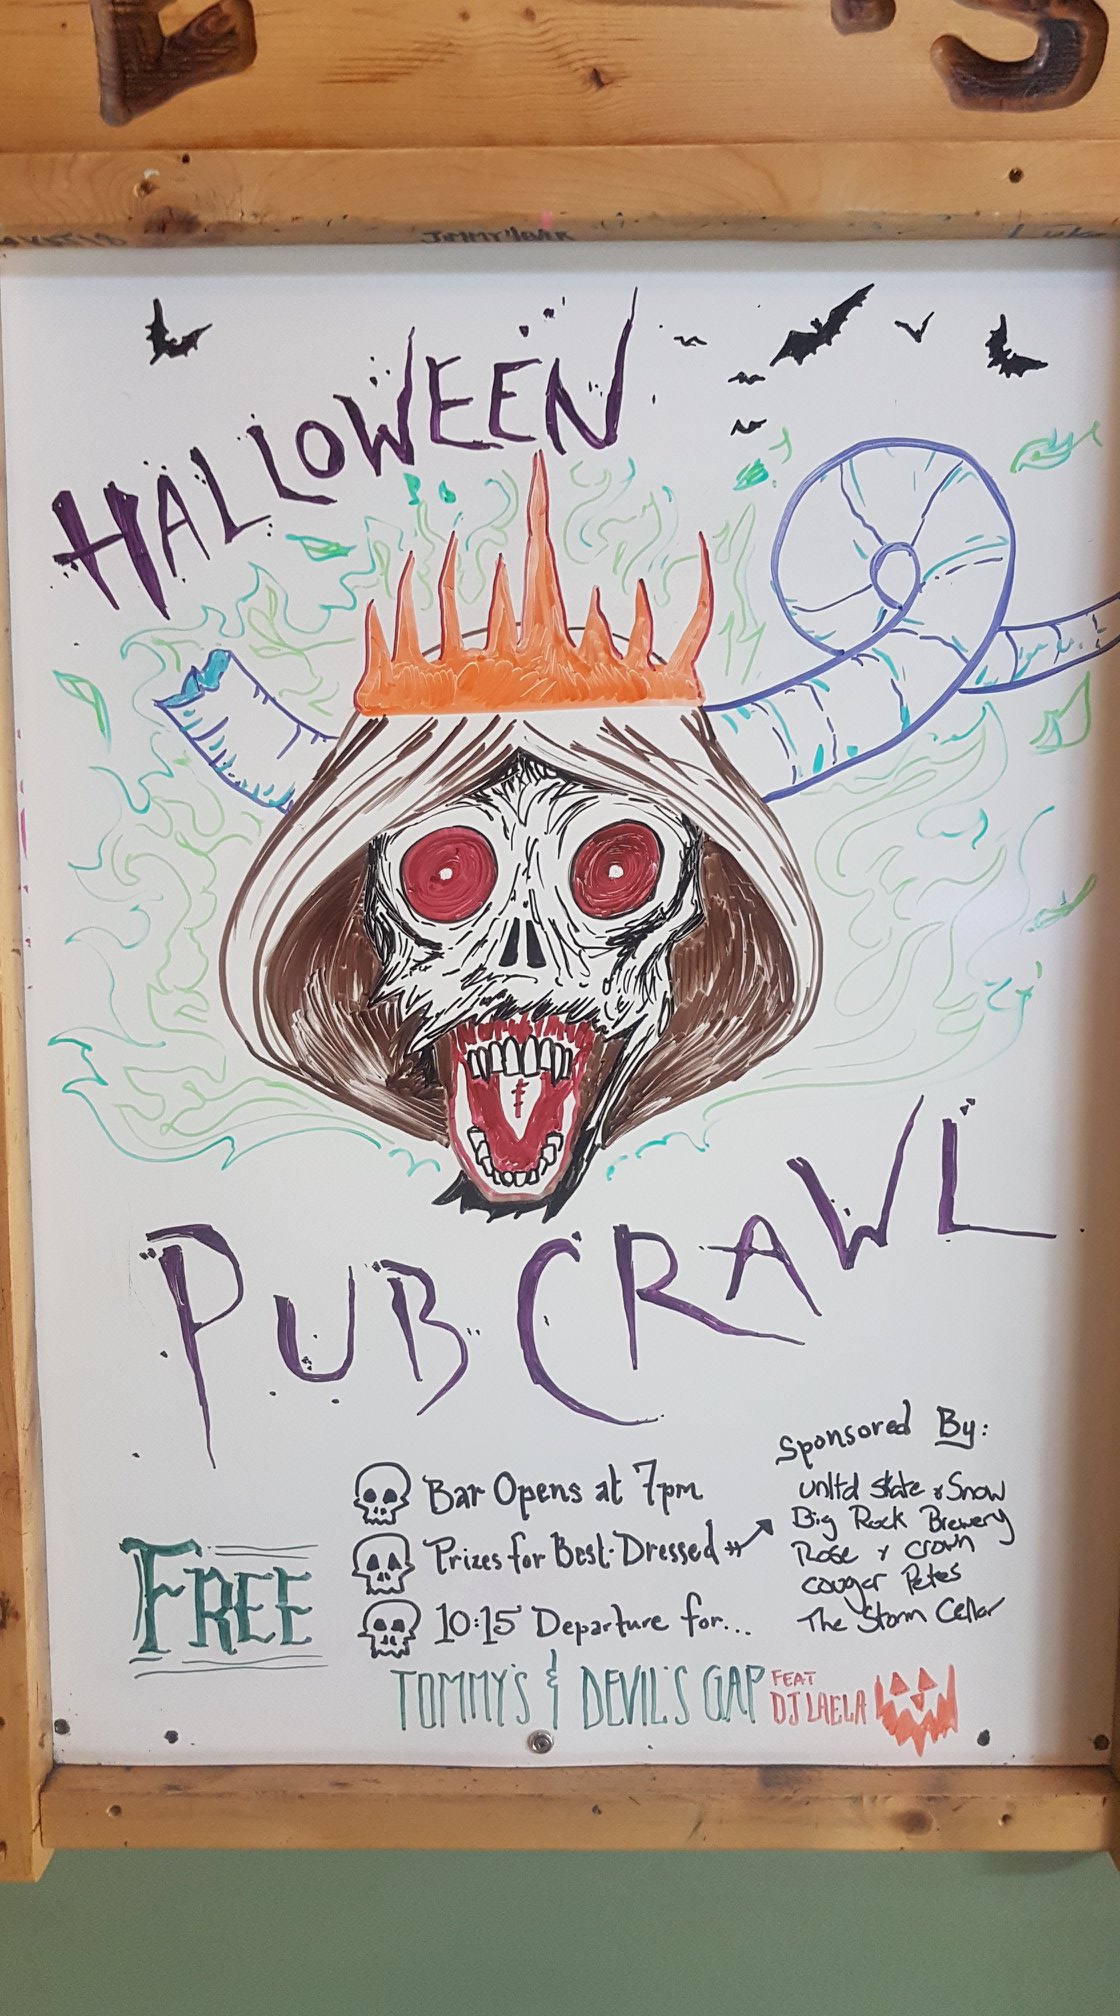 HALLOWEEN
PUB CRAWL
FREE
Bar Opens at 7pm
Prizes for Best-Dressed
10:15 Departure for...
TOMMY'S & DEVIL'S GAP
FEAT
DJ LAELA
Sponsored By:
unltd skate & Snow
Big Rock Brewery
Rose & Crown
cougar Petes
The Storm Cellar